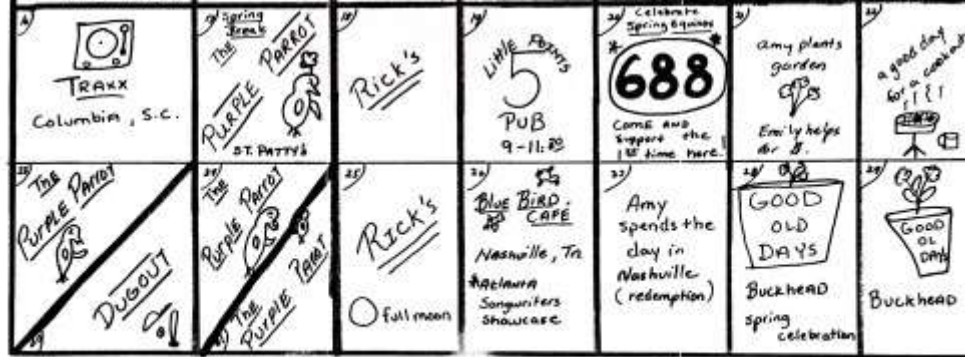 16
TRAXX
Columbia, S.C.
17
Spring
Break
The
PURPLE PARROT
ST. PATTY's
18
Rick's
19
Little
5
POINTS
PUB
9-11:30
20
Celebrate
Spring Equinox
* 688 *
COME AND
support the
1st time here!
21
amy plants
garden
Emily helps
22
a good day
for a cookout
The
PURPLE PARROT
DUGOUT
24
The
Purple Parrot
The
PURPLE
25
RICK's
full moon
26
BLUE BIRD
CAFÉ
Nashville, Tn
*Atlanta
Songwriters
Showcase
27
Amy
spends the
day in
Nashville
(redemption)
28
GOOD
OLD
DAYS
BUCKHEAD
spring
celebration
29
GOOD
OL
DAYS
BUCKHEAD